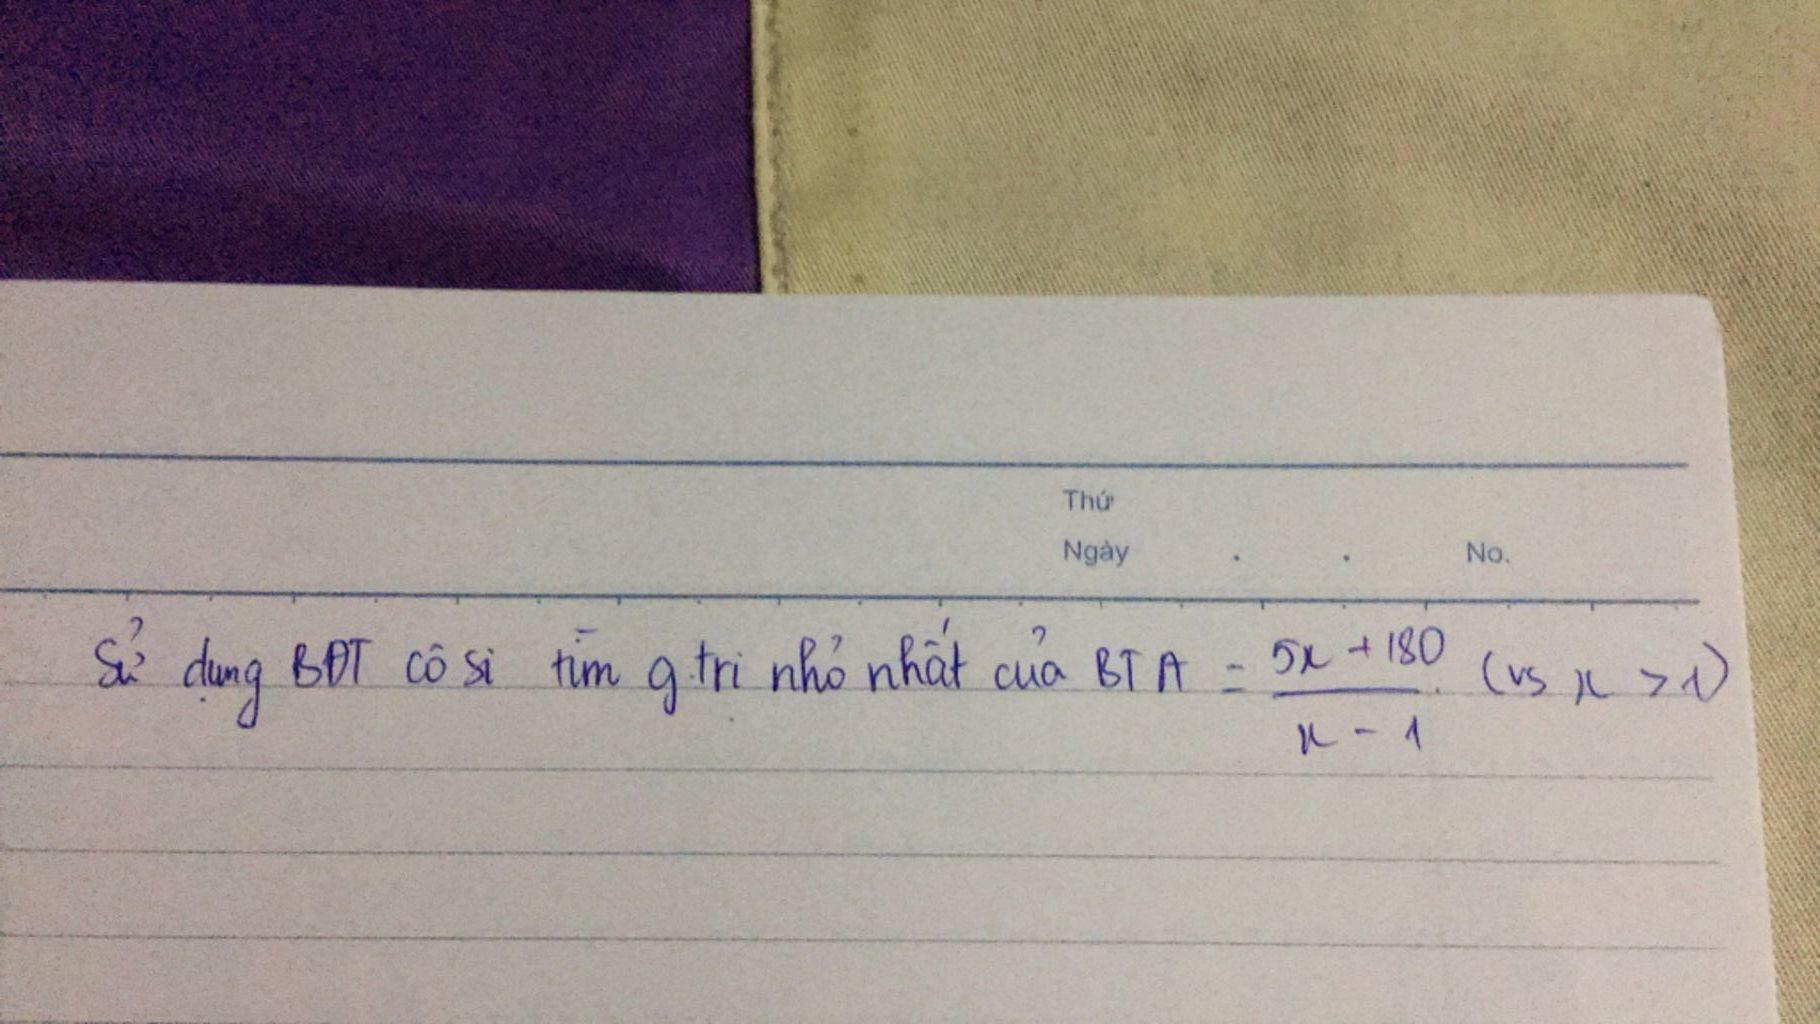 Thứ
Ngày . . No.
Sử dụng BĐT cô si tìm g.trị nhỏ nhất của BT A = 5x + 180 / x - 1 (vs x > 1)